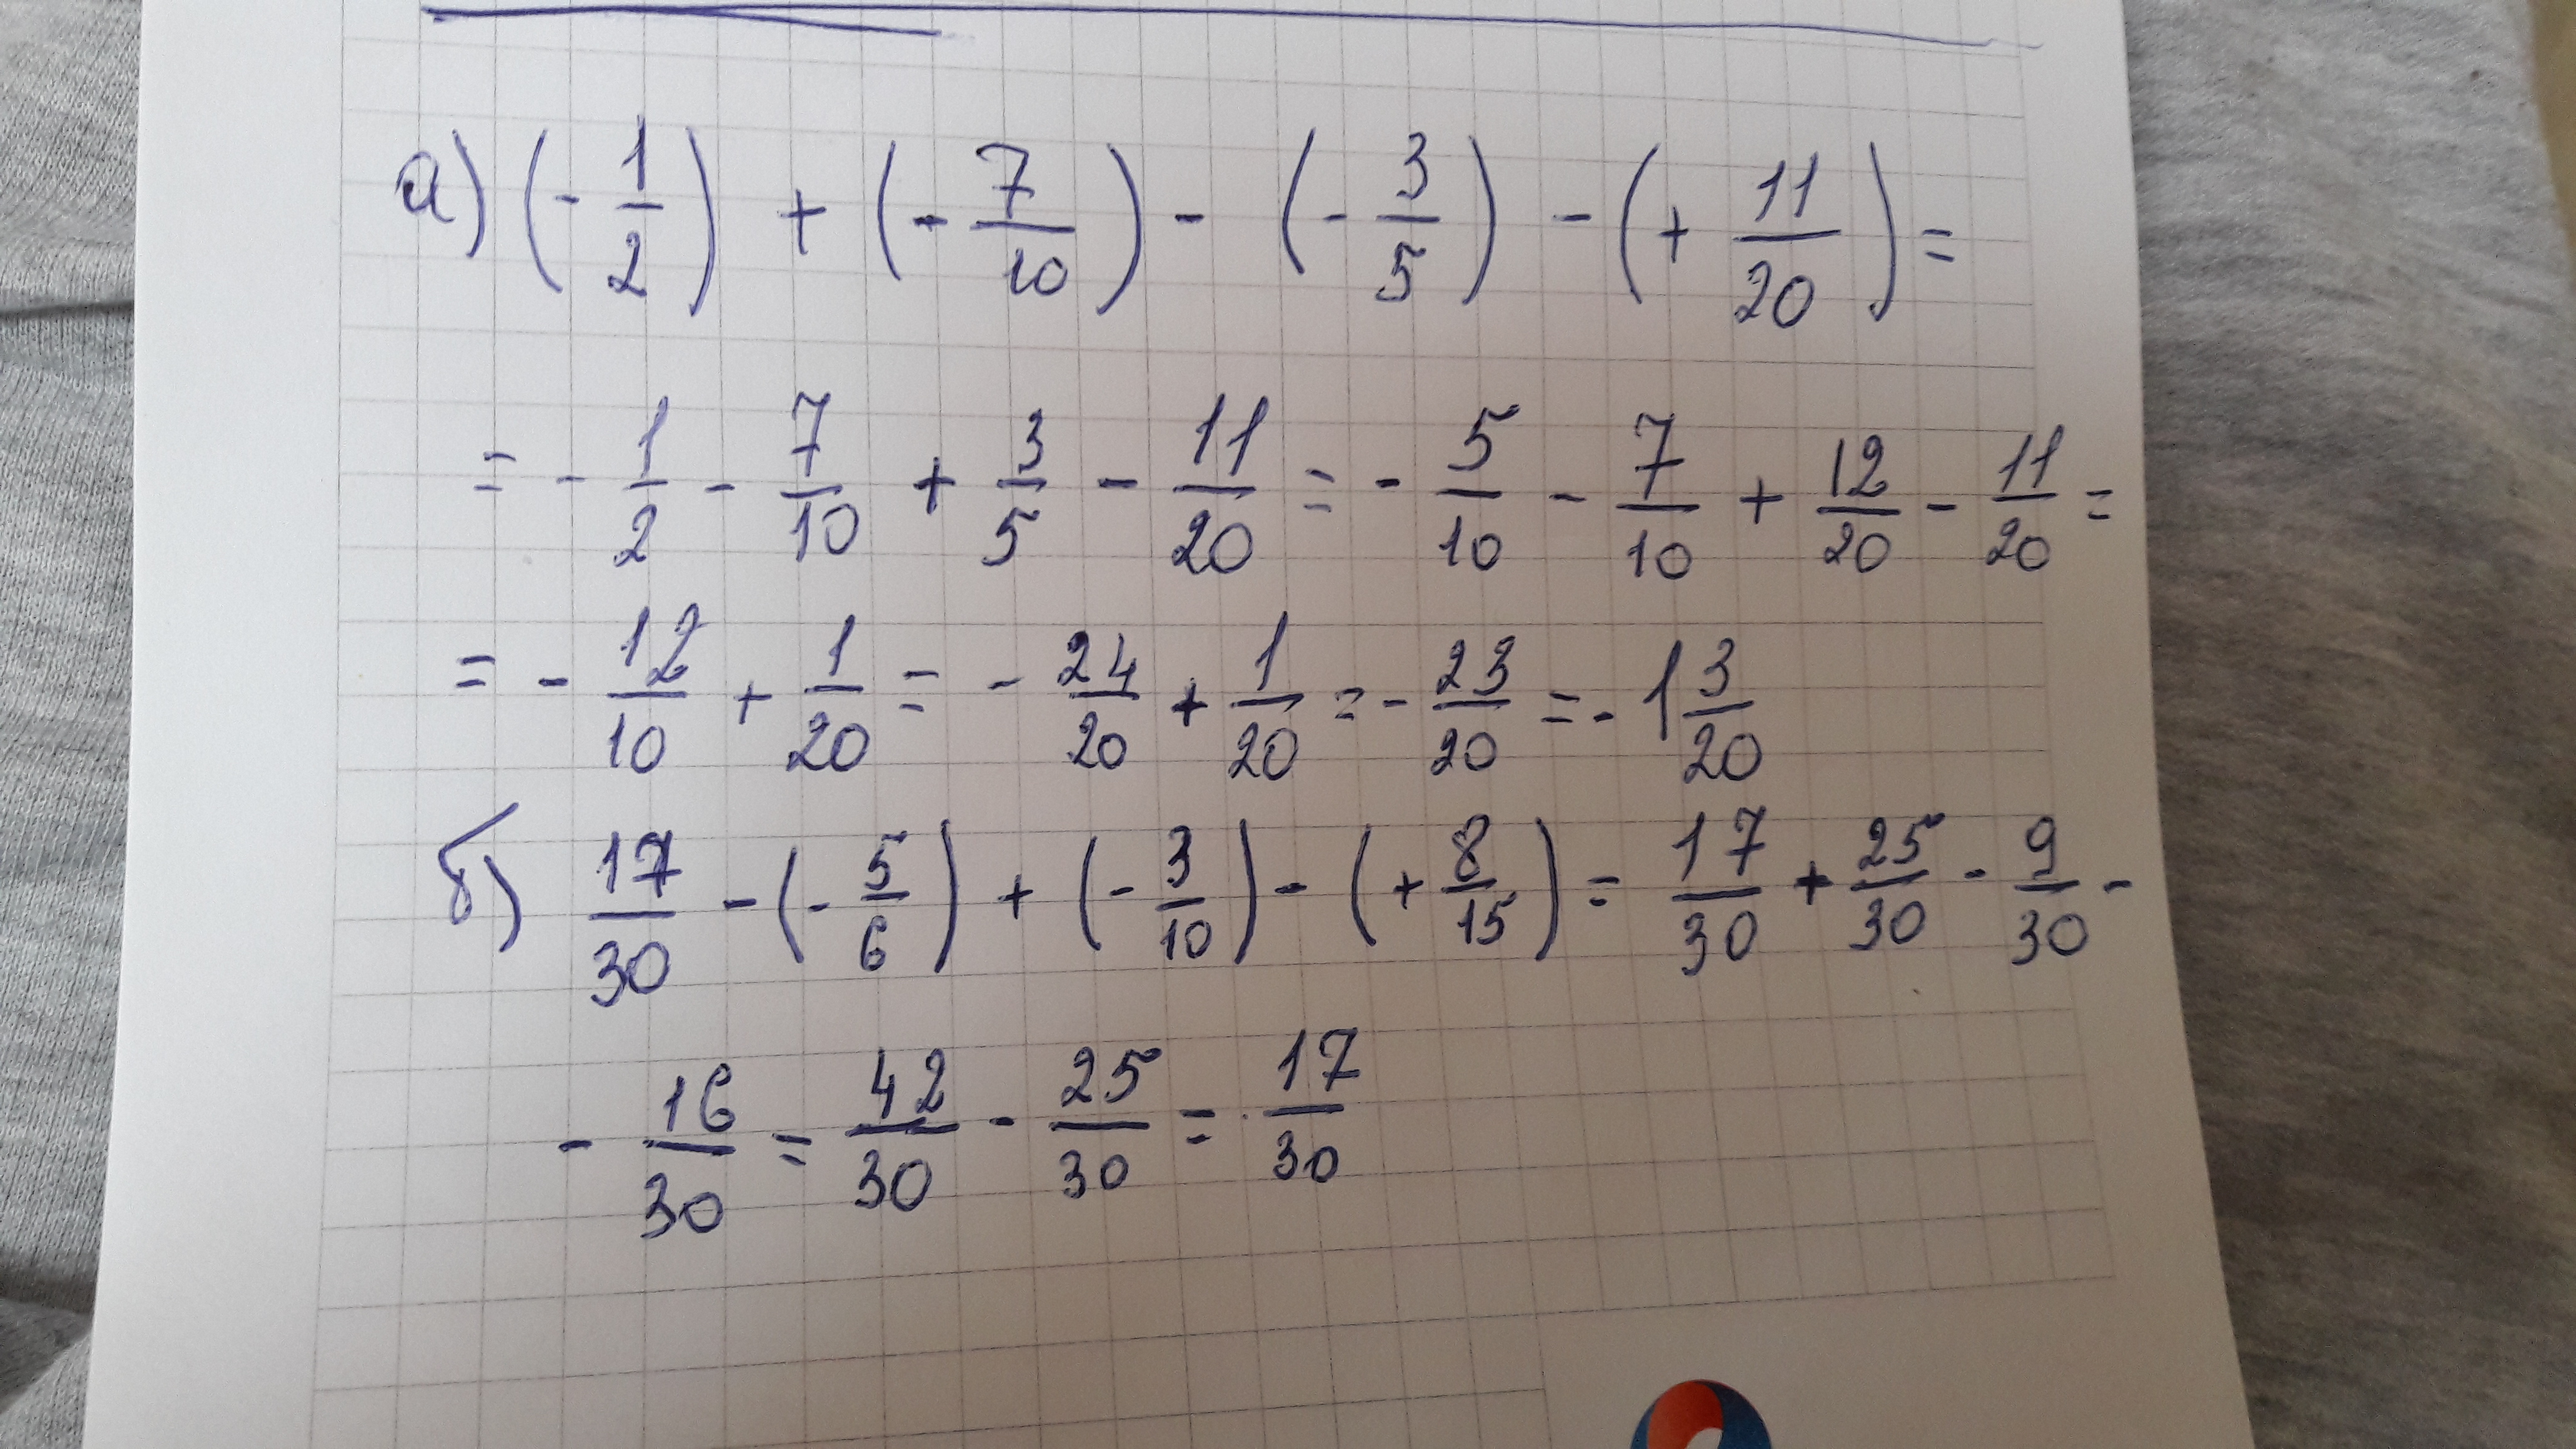 а) (- 1/2) + (- 7/10) - (- 3/5) - (+ 11/20) =
= - 1/2 - 7/10 + 3/5 - 11/20 = - 5/10 - 7/10 + 12/20 - 11/20 =
= - 12/10 + 1/20 = - 24/20 + 1/20 = - 23/20 = - 1 3/20
б) 17/30 - (- 5/6) + (- 3/10) - (+ 8/15) = 17/30 + 25/30 - 9/30 -
- 16/30 = 42/30 - 25/30 = 17/30